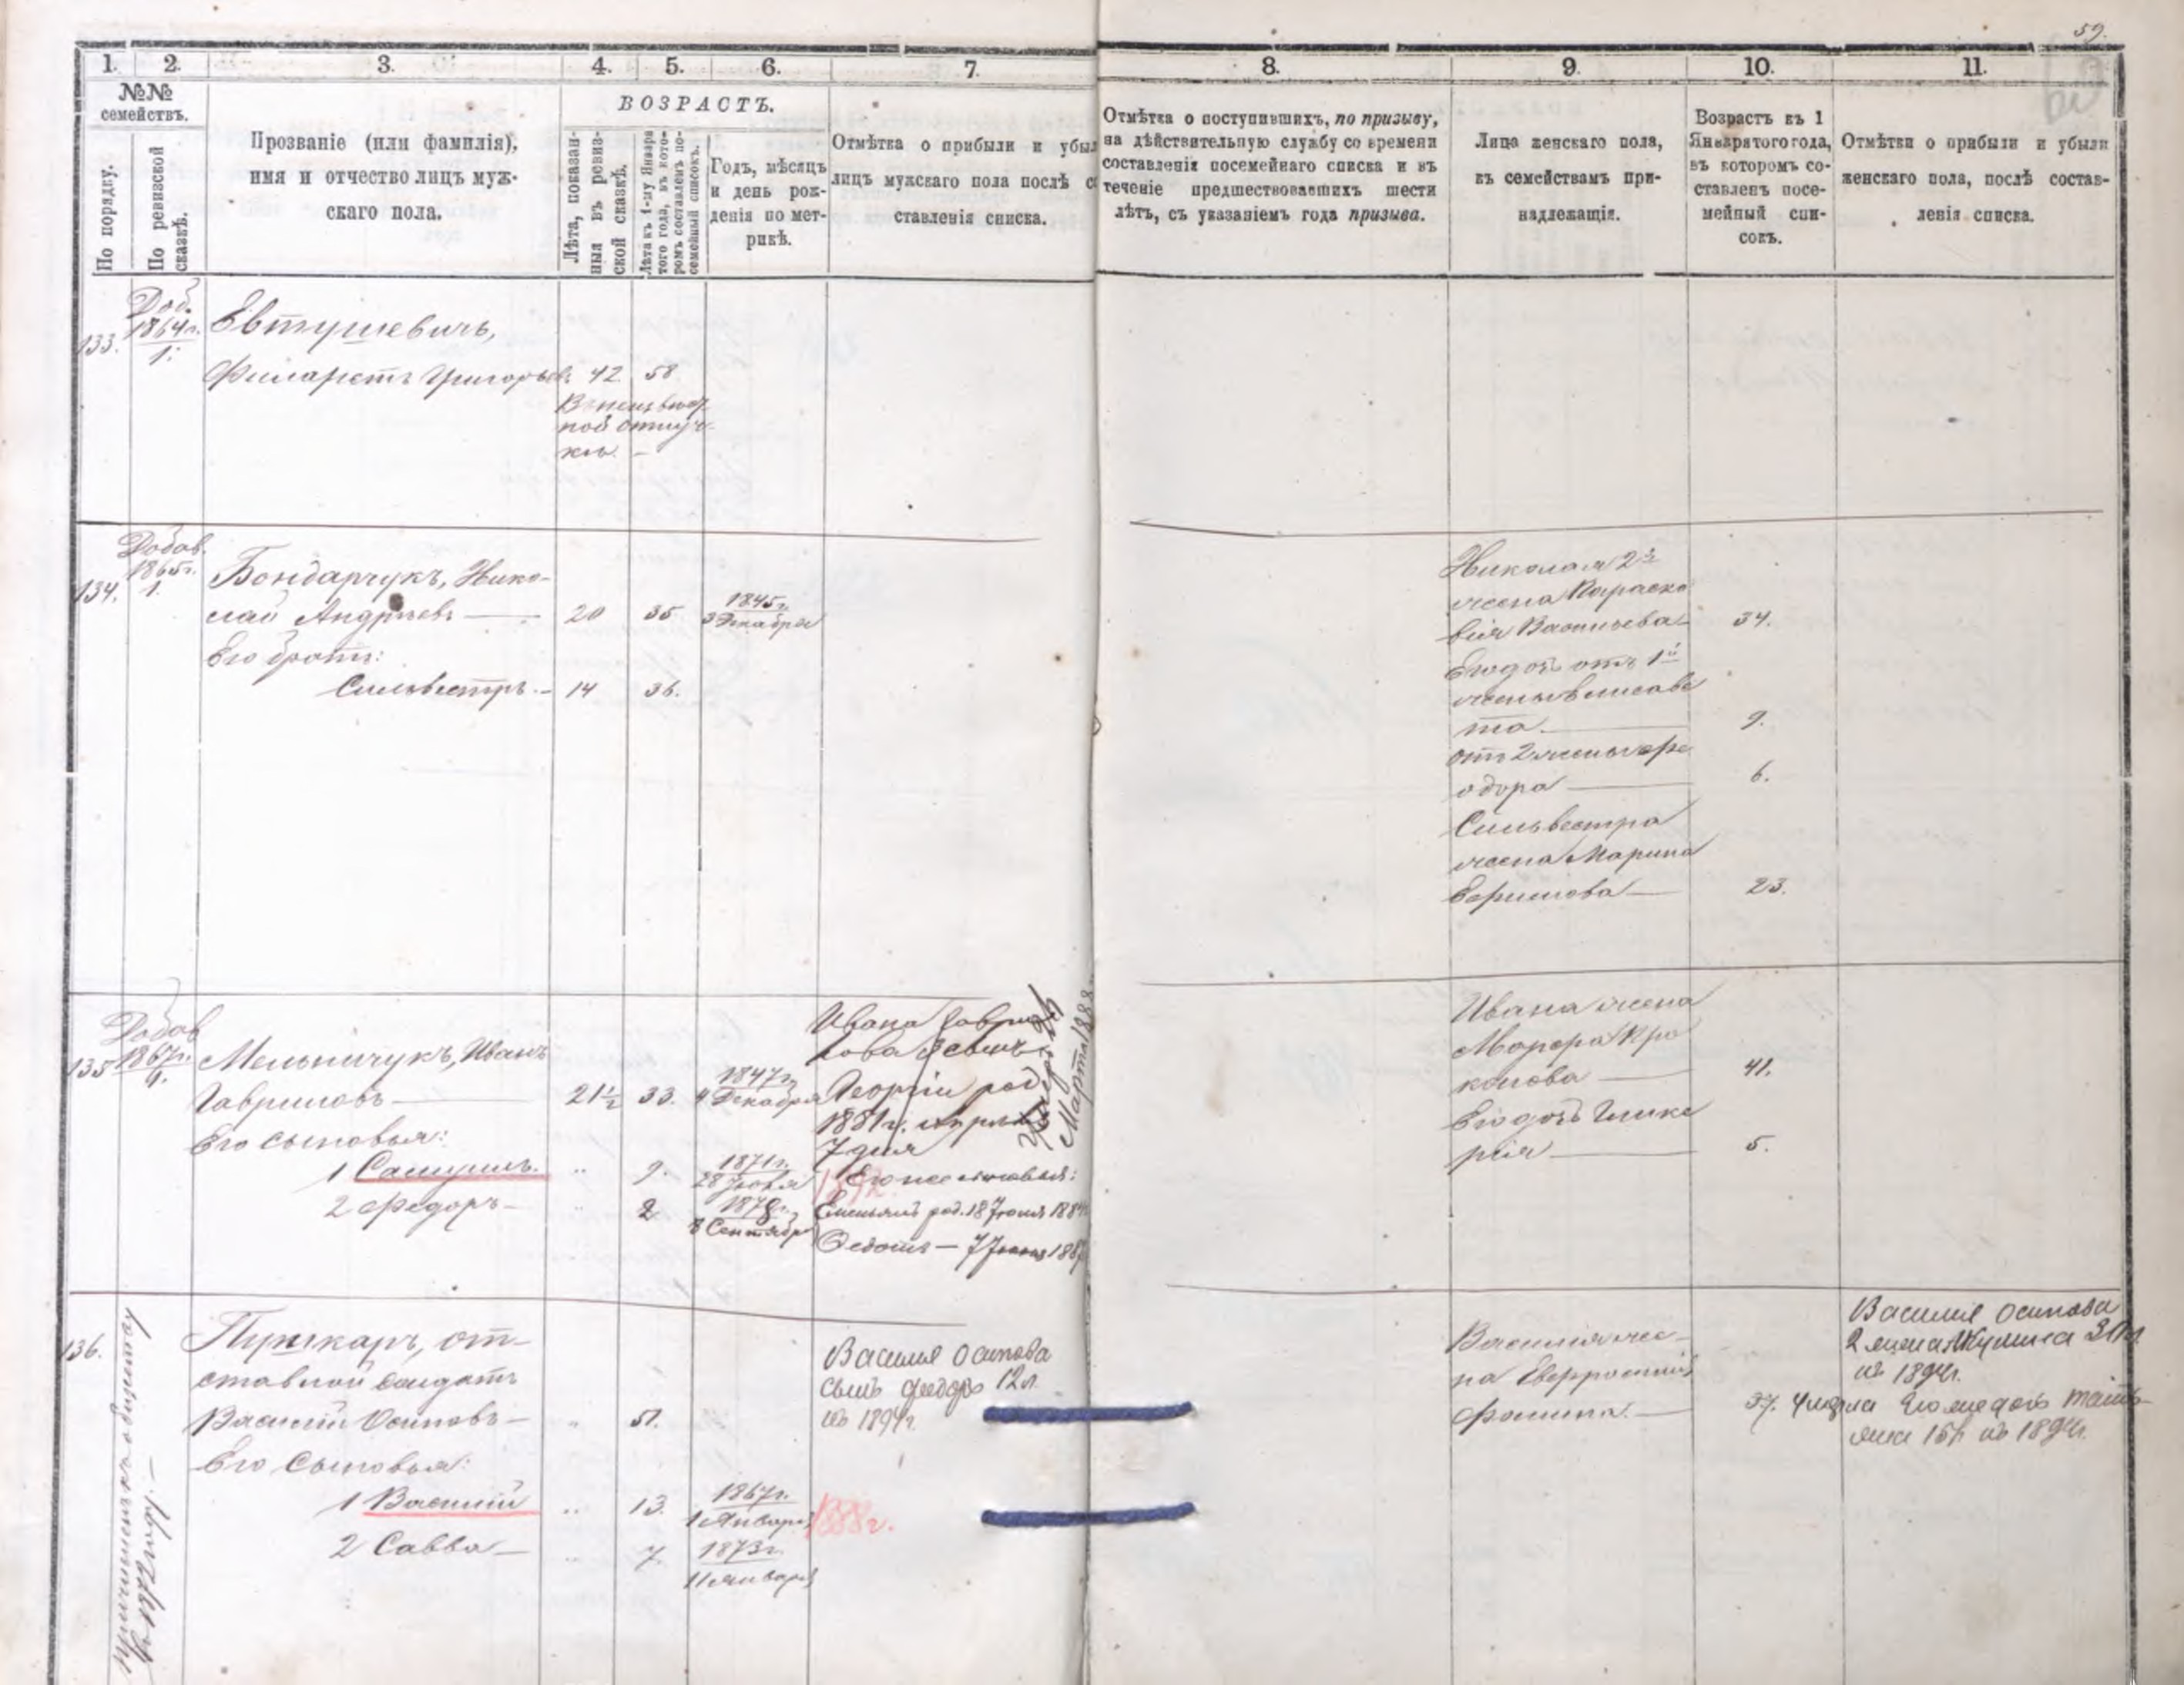 59.
1. 2. 3. 4. 5. 6. 7. 8. 9. 10. 11.
№№ семействъ.
По порядку.
По ревизской сказкѣ.
Прозваніе (или фамилія),
имя и отчество лицъ муж-
скаго пола.
ВОЗРАСТЪ.
Лѣта, показан-
ныя въ ревиз-
ской сказкѣ.
Лѣта къ 1-му Января
того года, въ кото-
ромъ составленъ по-
семейный списокъ.
Годъ, мѣсяцъ
и день рож-
денія по мет-
рикѣ.
Отмѣтка о прибыли и убыл
лицъ мужскаго пола послѣ со
ставленія списка.
Отмѣтка о поступившихъ, по призыву,
на дѣйствительную службу со времени
составленія посемейнаго списка и въ
теченіе предшествовавшихъ шести
лѣтъ, съ указаніемъ года призыва.
Лица женскаго пола,
къ семействамъ при-
надлежащія.
Возрастъ къ 1
Января того года,
въ которомъ со-
ставленъ посе-
мейный спи-
сокъ.
Отмѣтки о прибыли и убыли
женскаго пола, послѣ состав-
ленія списка.
133.
Доб.
1864г.
1.
Евтушевичъ,
Филаретъ Григорьевъ 42 58
Въ
ной отлуч-
кѣ. -
134.
Добав.
1865г.
1.
Бондарчукъ, Нико-
лай Андреевъ 20 35 1845г.
3 Декабря
Его братъ:
Сильвестръ - 14 36.
Николая 2я
жена Параске
вія Васильева 34.
Его дочь отъ 1й
жены Елисаве
та 9.
отъ 2 жены Фе
одора 6.
Сильвестра
жена Марина
Ефимова 23.
135
Добав
1867г.
1.
Мельничукъ, Иванъ
Гавриловъ 21½ 33. 1847г.
4 Декабря
Его сыновья:
1 Самуилъ. .. 9. 1871г.
28
2 Федоръ - .. 2 1878г.
8 Сентября
Ивана Гаври
лова 3 сынъ
Георгій род
1881г. Апрѣля
7 дня
Марта 1888
1892
Его же сыновья:
Емельянъ род. 18 Іюля 188
Федотъ - 7 188
Ивана жена
Марфа Про
копова 41.
Его дочь Глике
рія 5.
136.
Причисленъ къ обществу
въ 187
Пушкарь, от-
ставной солдатъ
Василій Осиповъ - .. 51.
Его сыновья:
1 Василій .. 13. 1867г.
1 Января
1888г.
2 Савва - .. 7. 1873г.
11 января
Василія Осипова
сынъ Федоръ 12 л.
къ 1894г.
Василія же-
на Евфросинія
Фомина. 37. умерла
Василія Осипова
2 жена Акулина
къ 1894г.
Его же дочь Татья-
на 15 л. къ 1894г.